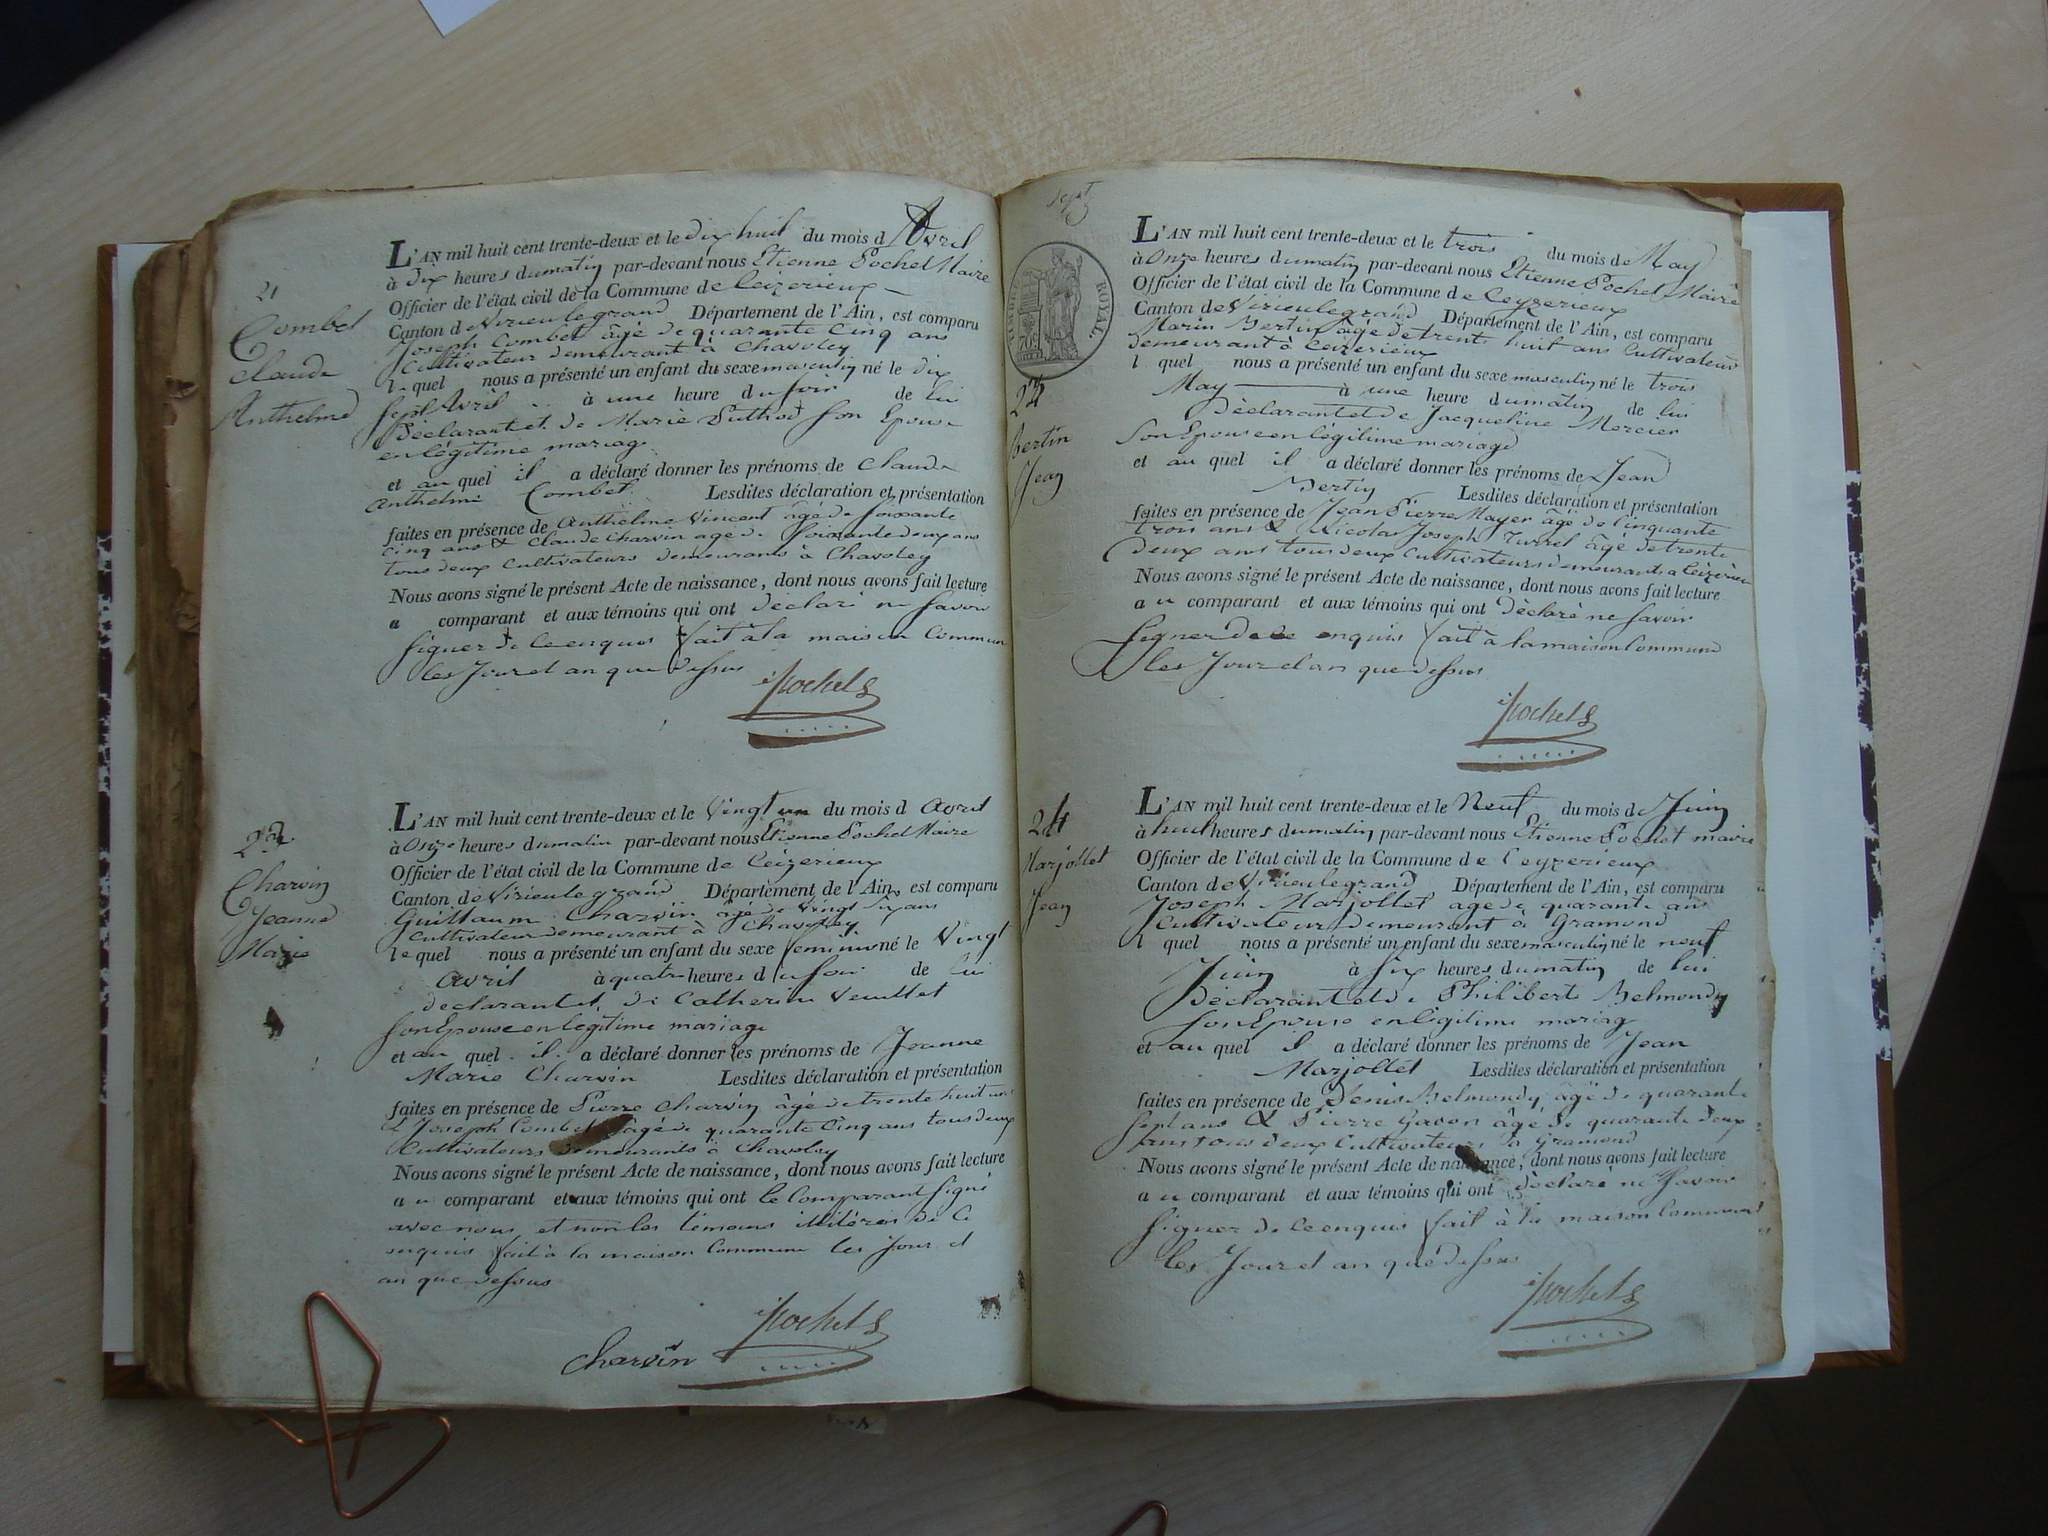 21
Combet
Claude
Anthelme
L'AN mil huit cent trente-deux et le dix huit du mois d'Avril
à dix heures du matin par-devant nous Etienne Pochet Maire
Officier de l'état civil de la Commune de Ceizerieux
Canton de Virieulegrand Département de l'Ain, est comparu
Joseph Combet âgé de quarante cinq ans
Cultivateur demeurant à Chavoley
lequel nous a présenté un enfant du sexe masculin né le dix
sept Avril à une heure du soir de lui
Déclarant et de Marie Puthod son Epouse
en légitime mariage
et au quel il a déclaré donner les prénoms de Claude
Anthelme Combet Lesdites déclaration et présentation
faites en présence de Anthelme Vincent âgé de soixante
cinq ans & Claude Charvin agé de soixante deux ans
tous deux Cultivateurs demeurants à Chavoley
Nous avons signé le présent Acte de naissance, dont nous avons fait lecture
a comparant et aux témoins qui ont déclaré ne savoir
signer de ce enquis fait à la maison Commune
les Jour et an que dessus
Pochet
22
Charvin
Jeanne
Marie
L'AN mil huit cent trente-deux et le Vingt un du mois d avril
à Onze heures du matin par-devant nous Etienne Pochet Maire
Officier de l'état civil de la Commune de Ceizerieux
Canton de Virieulegrand Département de l'Ain, est comparu
Guillaume Charvin âgé de vingt six ans
Cultivateur demeurant à Chavoley
lequel nous a présenté un enfant du sexe feminin né le Vingt
Avril à quatre heures du soir de lui
declarant et de Catherine Veuillet
son Epouse en legitime mariage
et au quel il a déclaré donner les prénoms de Jeanne
Marie Charvin Lesdites déclaration et présentation
faites en présence de Pierre Charvin âgé de trente huit ans
& Joseph Combet âgé de quarante cinq ans tous deux
Cultivateurs demeurants à Chavoley
Nous avons signé le présent Acte de naissance, dont nous avons fait lecture
au comparant et aux témoins qui ont le Comparant signé
avec nous et non les témoins illitérés de ce
enquis fait à la maison Commune les Jour et
an que dessus
Pochet
Charvin
sept
TIMBRE ROYAL
70c
23
Bertin
Jean
L'AN mil huit cent trente-deux et le trois du mois de May
à Onze heures du matin par-devant nous Etienne Pochet Maire
Officier de l'état civil de la Commune de Ceyzerieux
Canton de Virieulegrand Département de l'Ain, est comparu
Marin Bertin âgé de trente huit ans Cultivateur
demeurant à Ceizerieux
l quel nous a présenté un enfant du sexe masculin né le trois
May à une heure du matin de lui
Déclarant et de Jacqueline Mercier
son Epouse en légitime mariage
et au quel il a déclaré donner les prénoms de Jean
Bertin Lesdites déclaration et présentation
faites en présence de Jean Pierre Mayer âgé de Cinquante
trois ans & Nicolas Joseph Turrel âgé de trente
deux ans tous deux Cultivateurs demeurants a Ceizerieu
Nous avons signé le présent Acte de naissance, dont nous avons fait lecture
au comparant et aux témoins qui ont déclaré ne savoir
signer de ce enquis fait à la maison Commune
les Jour et an que dessus
Pochet
24
Marjollet
Jean
L'AN mil huit cent trente-deux et le Neuf du mois de Juin
à huit heures du matin par-devant nous Etienne Pochet maire
Officier de l'état civil de la Commune de Ceyzerieux
Canton de Virieulegrand Département de l'Ain, est comparu
Joseph Marjollet agé de quarante ans
Cultivateur demeurant à Gramond
l quel nous a présenté un enfant du sexe masculin né le neuf
Juin à six heures du matin de lui
Déclarant et de Philiberte Belmondy
son Epouse en légitime mariage
et au quel il a déclaré donner les prénoms de Jean
Marjollet Lesdites déclaration et présentation
faites en présence de Denis Belmondy âgé de quarante
sept ans & Pierre Gavon âgé de quarante deux
ans tous deux Cultivateurs de Gramond
Nous avons signé le présent Acte de naissance, dont nous avons fait lecture
au comparant et aux témoins qui ont déclaré ne savoir
signer de ce enquis fait à la maison Commune
les Jour et an que dessus
Pochet